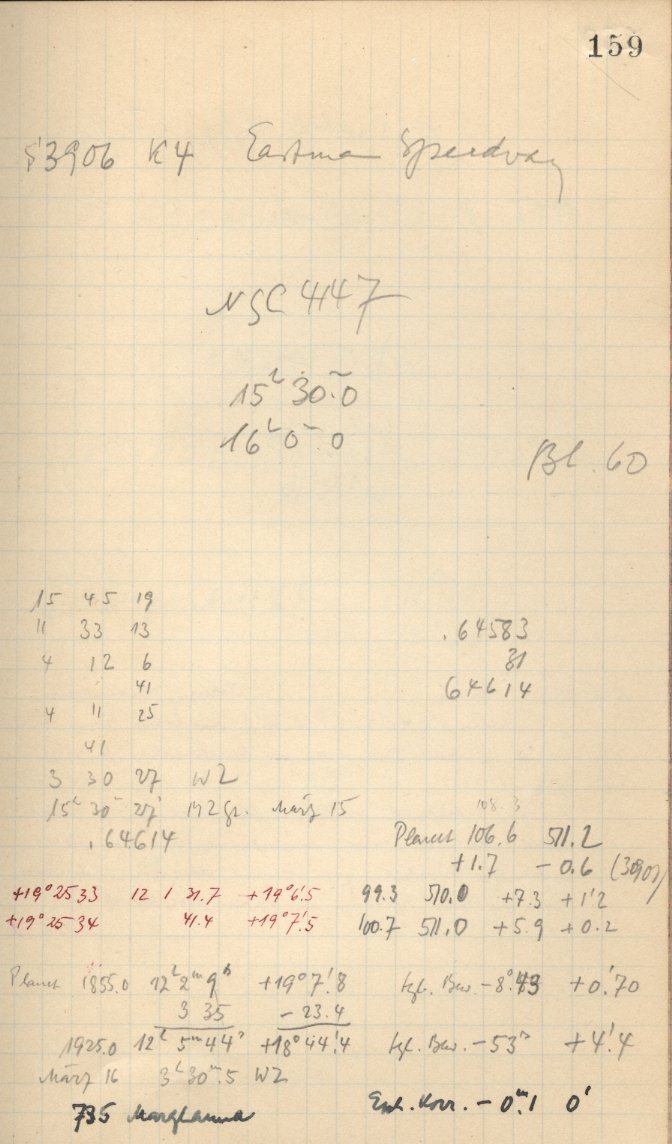 159
S3906 K4 Eastman Speedway
NGC 4147
15ʰ 30ᵐ.0
16ʰ 0ᵐ.0
Bl. 60
15 45 19
11 33 13
4 12 6
41
4 11 25
41
3 30 27 WZ
15ʰ 30ᵐ 27ˢ März 15
.64614
.64583
31
64614
108.3
Planet 106.6 511.2
+1.7 -0.6 (3907)
+19°2533 12 1 31.7 +19°6'.5 99.3 510.0 +7.3 +1'2
+19°2534 41.4 +19°7'.5 100.7 511.0 +5.9 +0.2
Planet 1855.0 12ʰ 2ᵐ 9ˢ +19°7'.8 tgl. Bew. -8ˢ.43 +0'.70
3 35 -23.4
1925.0 12ʰ 5ᵐ 44ˢ +18°44'.4 tgl. Bew. -53ˢ +4'.4
März 16 3ʰ 30ᵐ.5 WZ
735 Marghanna Eph. Korr. -0ᵐ.1 0'